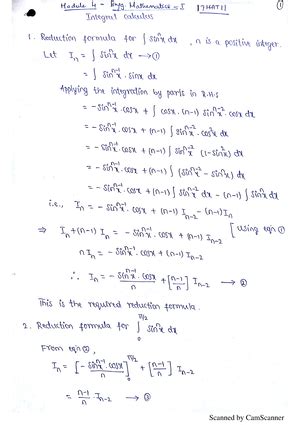 Module 4 - Engg. Mathematics - I 17MAT11
①
Integral calculus
1. Reduction formula for ∫ sinⁿx dx , n is a positive integer.
Let Iₙ = ∫ sinⁿx dx → ①
= ∫ sinⁿ⁻¹x . sinx dx
Applying the integration by parts in R.H.S
= -sinⁿ⁻¹x . cosx + ∫ cosx . (n-1) sinⁿ⁻²x . cosx dx
= -sinⁿ⁻¹x . cosx + (n-1) ∫ sinⁿ⁻²x . cos²x dx
= -sinⁿ⁻¹x . cosx + (n-1) ∫ sinⁿ⁻²x (1-sin²x) dx
= -sinⁿ⁻¹x . cosx + (n-1) ∫ (sinⁿ⁻²x - sinⁿx) dx
= -sinⁿ⁻¹x . cosx + (n-1) ∫ sinⁿ⁻²x dx - (n-1) ∫ sinⁿx dx
i.e., Iₙ = -sinⁿ⁻¹x . cosx + (n-1) Iₙ₋₂ - (n-1) Iₙ
⇒ Iₙ + (n-1) Iₙ = -sinⁿ⁻¹x . cosx + (n-1) Iₙ₋₂ [using eqn ①
n Iₙ = -sinⁿ⁻¹x . cosx + (n-1) Iₙ₋₂
∴ Iₙ = -sinⁿ⁻¹x . cosx / n + [n-1 / n] Iₙ₋₂ → ②
This is the required reduction formula.
2. Reduction formula for ∫₀^π/2 sinⁿx dx
From eqn ②,
Iₙ = [-sinⁿ⁻¹x . cosx / n]₀^π/2 + [n-1 / n] Iₙ₋₂
= n-1 / n Iₙ₋₂ → ③
Scanned by CamScanner